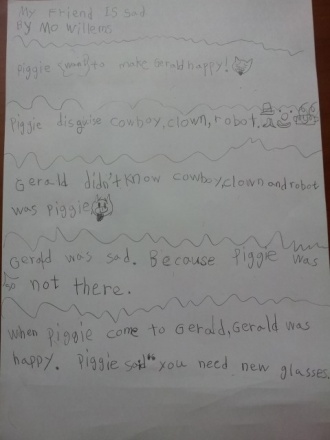 My Friend IS sad
BY Mo Willems
Piggie want to make Gerald happy!
Piggie disguise cowboy, clown, robot.
Gerald didn't know cowboy, clown and robot
was Piggie
Gerald was sad. Because Piggie was
not there.
When Piggie come to Gerald, Gerald was
happy. Piggie said "you need new glasses.